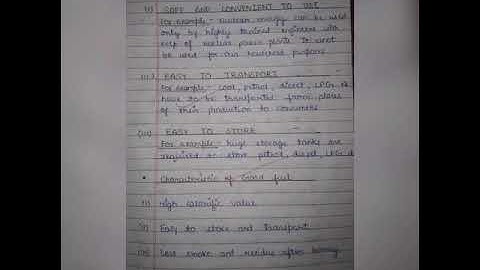 (ii) SAFE AND CONVENIENT TO USE
For example,- nuclear energy can be used
only by highly trained engineers with
help of nuclear power plants it cannot
be used for our household purposes
(iii) EASY TO TRANSPORT
For example,- coal, petrol, diesel, LPG
have to be transported from places
of their production to consumers
(iv) EASY TO STORE
For example,- huge storage tanks are
required to store petrol, diesel, LPG
• Characteristic of Good fuel
(i) High calorific value
(ii) Easy to store and transport
(iii) Less smoke and residue after burning